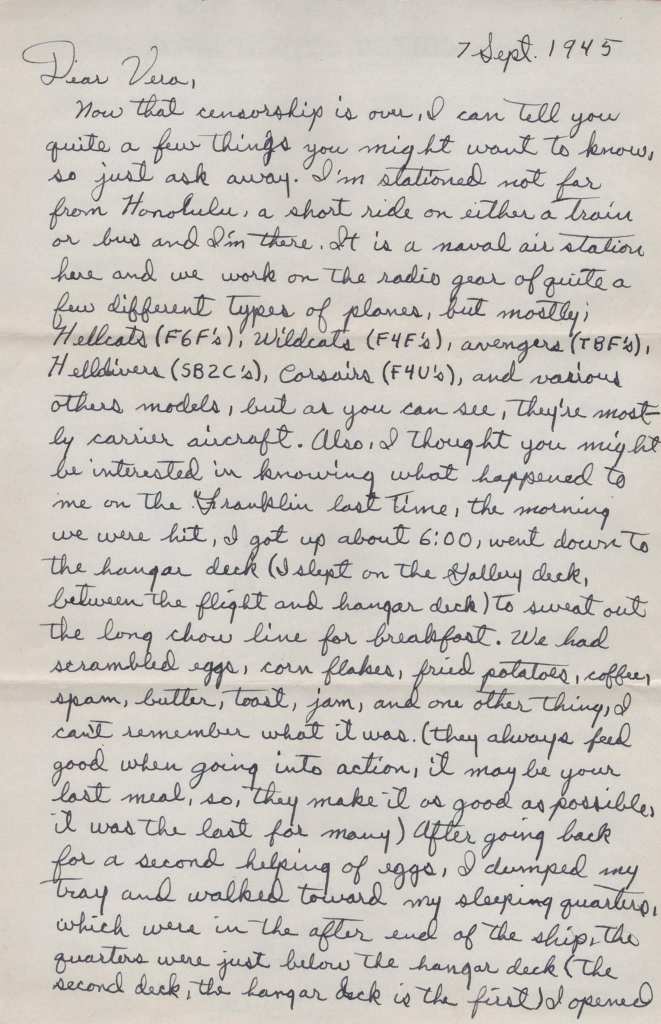 7 Sept. 1945
Dear Vera,
Now that censorship is over, I can tell you
quite a few things you might want to know,
so just ask away. I'm stationed not far
from Honolulu, a short ride on either a train
or bus and I'm there. It is a naval air station
here and we work on the radio gear of quite a
few different types of planes, but mostly;
Hellcats (F6F's), Wildcats (F4F's), avengers (TBF's),
Helldivers (SB2C's), Corsairs (F4U's), and various
others models, but as you can see, they're most-
ly carrier aircraft. Also, I thought you might
be interested in knowing what happened to
me on the Franklin last time, the morning
we were hit, I got up about 6:00, went down to
the hangar deck (I slept on the Gallery deck,
between the flight and hangar deck) to sweat out
the long chow line for breakfast. We had
scrambled eggs, corn flakes, fried potatoes, coffee,
spam, butter, toast, jam, and one other thing, I
can't remember what it was. (they always feed
good when going into action, it may be your
last meal, so, they make it as good as possible,
it was the last for many) After going back
for a second helping of eggs, I dumped my
tray and walked toward my sleeping quarters,
which were in the after end of the ship, the
quarters were just below the hangar deck (the
second deck, the hangar deck is the first) I opened